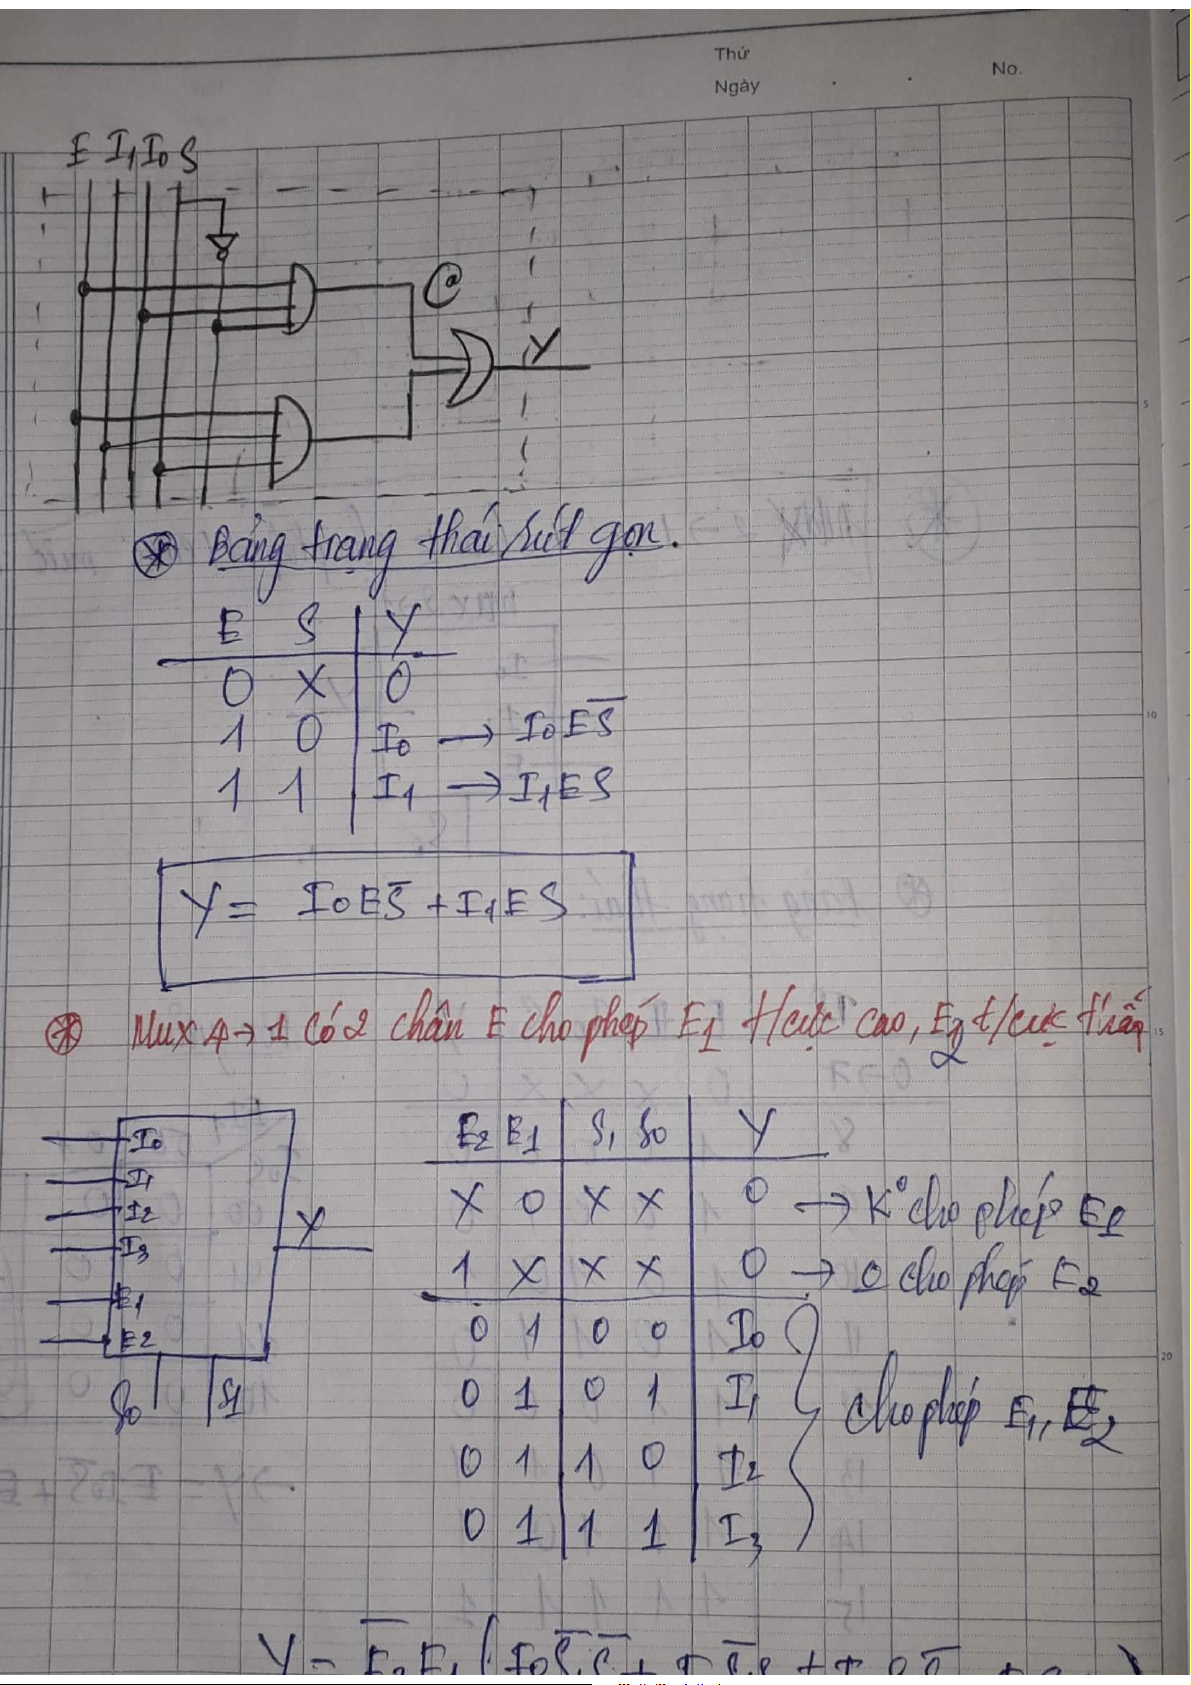 Thứ
Ngày
No.
E I₁ I₀ S
@
Y
5
⊛ Bảng trạng thái rút gọn.
E S Y
0 X 0
1 0 I₀ → I₀ES̅
1 1 I₁ → I₁ES
10
Y = I₀ES̅ + I₁ES
⊛ Mux 4→1 có 2 chân E cho phép E₁ t/cực cao, E₂ t/cực thấp
15
I₀
I₁
I₂
I₃
E₁
E₂
S₀ S₁
Y
E₂ E₁ S₁ S₀ Y
X 0 X X 0 → K° cho phép E₁
1 X X X 0 → 0 cho phép E₂
0 1 0 0 I₀
0 1 0 1 I₁
0 1 1 0 I₂
0 1 1 1 I₃
cho phép E₁, E₂
20
Y = E̅₂E₁(I₀S̅₁S̅